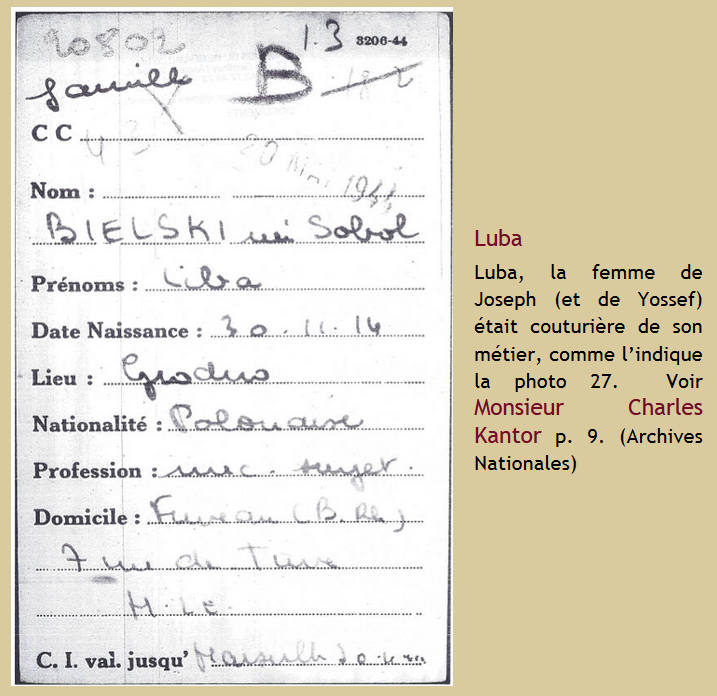 20802
1.3 3206-44
famille B
C C
20 MAI 1944
Nom :
BIELSKI née Sobol
Prénoms : Liba
Date Naissance : 30.11.14
Lieu : Grodno
Nationalité : Polonaise
Profession :
Domicile : Fuveau (B. Rh)
7 rue de
C. I. val. jusqu' Marseille
Luba
Luba, la femme de
Joseph (et de Yossef)
était couturière de son
métier, comme l'indique
la photo 27. Voir
Monsieur Charles
Kantor p. 9. (Archives
Nationales)